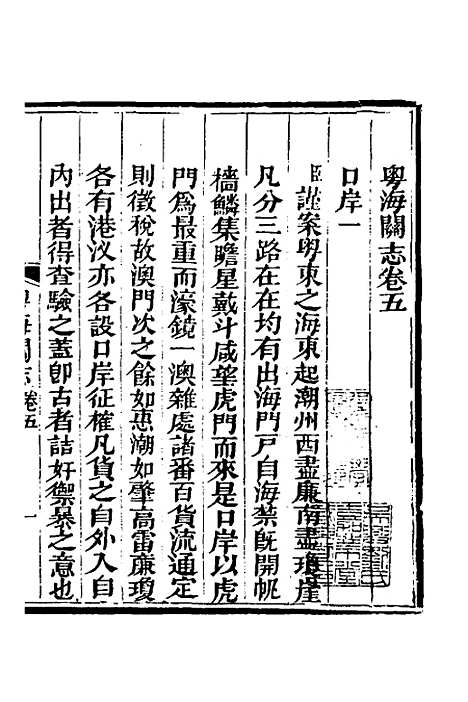 粵海關志卷五
口岸一
臣謹案粵東之海東起潮州西盡廉南盡瓊崖
凡分三路在在均有出海門戶自海禁旣開帆
檣鱗集瞻星戴斗咸望虎門而來是口岸以虎
門爲最重而濠鏡一澳雜處諸番百貨流通定
則徵稅故澳門次之餘如惠潮如肇高雷廉瓊
各有港汊亦各設口岸征榷凡貨之自外入自
內出者得查驗之蓋卽古者詰奸禦暴之意也
粵海關志 卷五 一